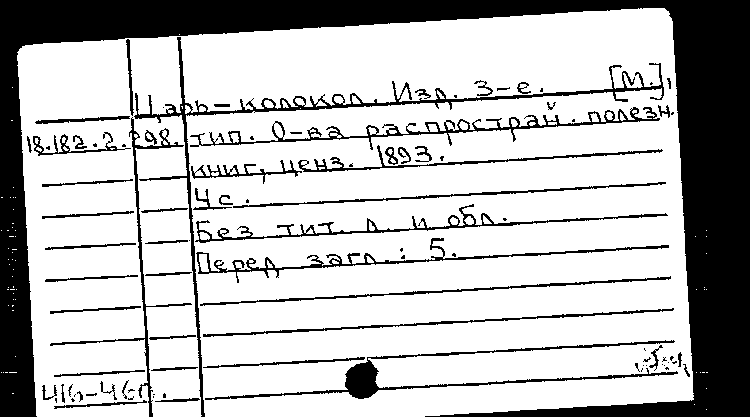 Царь-колокол. Изд. 3-е. [М.],
18.182.2.298. тип. О-ва распострай. полезн.
книг, ценз. 1893.
4 с.
Без тит. л. и обл.
Перед загл.: 5.